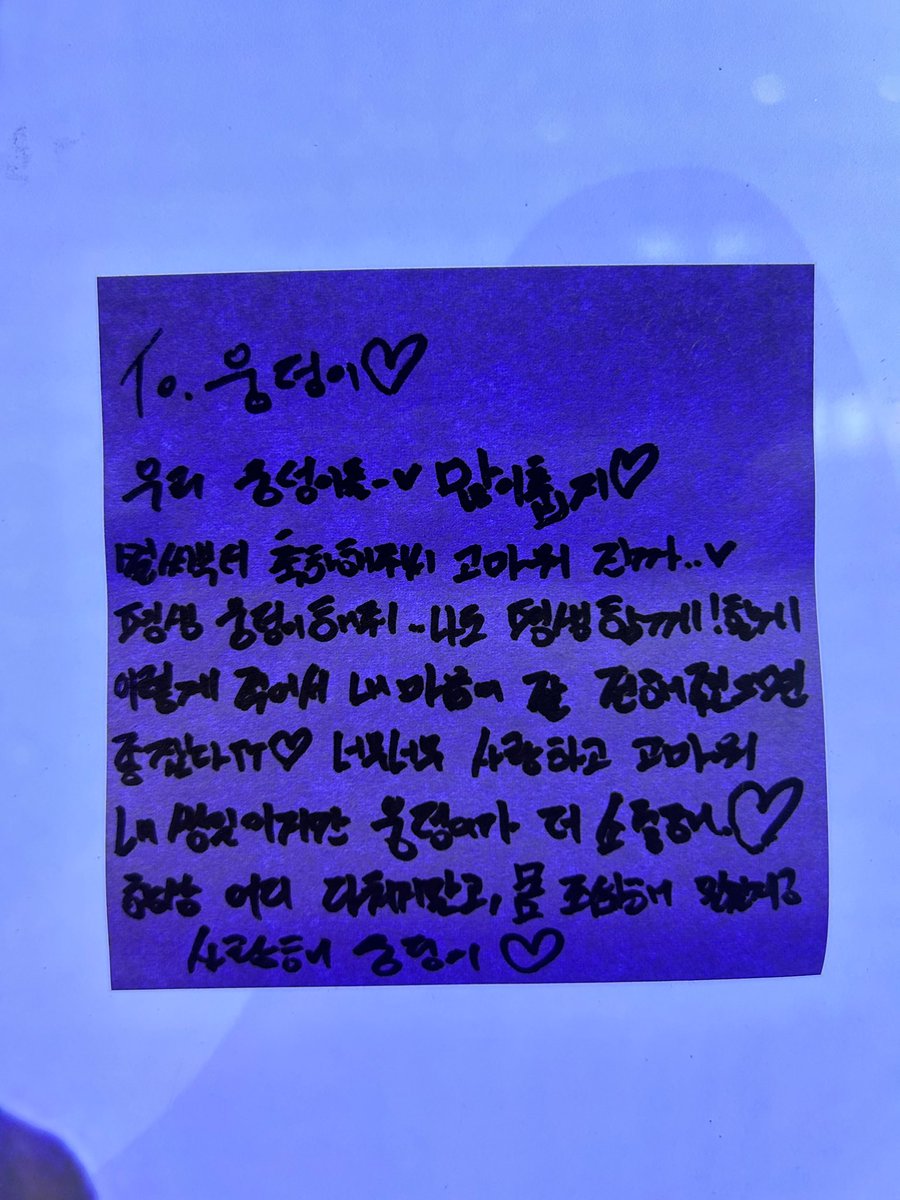 To. 웅덩이♡
우리 웅덩이들~♥ 많이춥지♡
멀리서부터 축하해줘서 고마워 진짜..♥
평생 웅덩이해줘~나도 평생할게! 할게
이렇게 적어서 내 마음이 잘 전해졌으면
좋겠다ㅠㅠ♡ 너무너무 사랑하고 고마워
내 생일이지만 웅덩이가 더 소중해.♡
항상 어디 다치지말고, 몸 조심해 알겠지?
사랑해 웅덩이♡